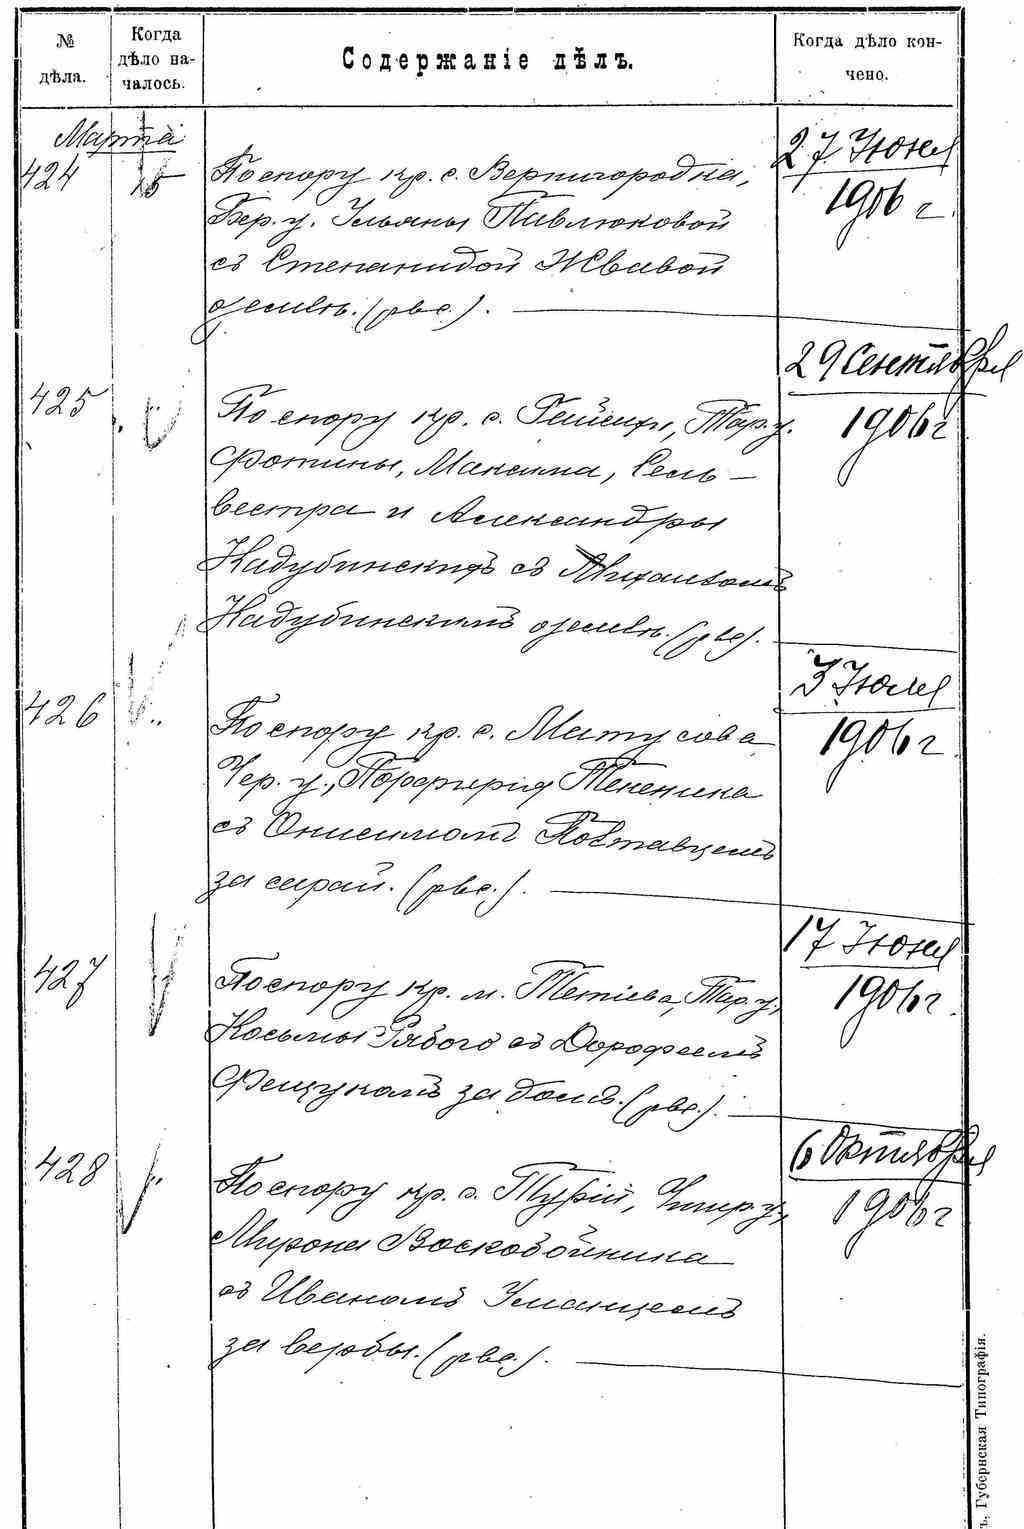 № дѣла.
Когда дѣло началось.
Содержаніе дѣлъ.
Когда дѣло кончено.
Марта
424
15
По спору кр. с. Вернигородка,
Бер. у. Ульяны Павлюковой
съ Степанидой Жвавой
о земле. (рвс.).
27 Июня
1906 г.
425
По спору кр. с. Тар. у.
Фотины, Максима, Силь-
вестра и Александры
Кадубинскихъ съ Михаиломъ
Кадубинскимъ о земле. (рвс).
29 Сентября
1906 г
426
По спору кр. с. Матусова
Чер. у., Порфирия
съ Онисимомъ Поставцемъ
за сарай. (рвс.).
3 Июля
1906 г
427
По спору кр. м. Тетіева, Тар. у.,
Косьмы Рябого съ Дорофеемъ
Фещукомъ за домъ. (рвс.).
17 Июня
1906 г.
428
По спору кр. с. Турій, Чигир. у.,
Мирона Воскобойника
съ Иваномъ Уманцемъ
за вербы. (рвс.).
6 Октября
1906 г
Губернская Типографія.